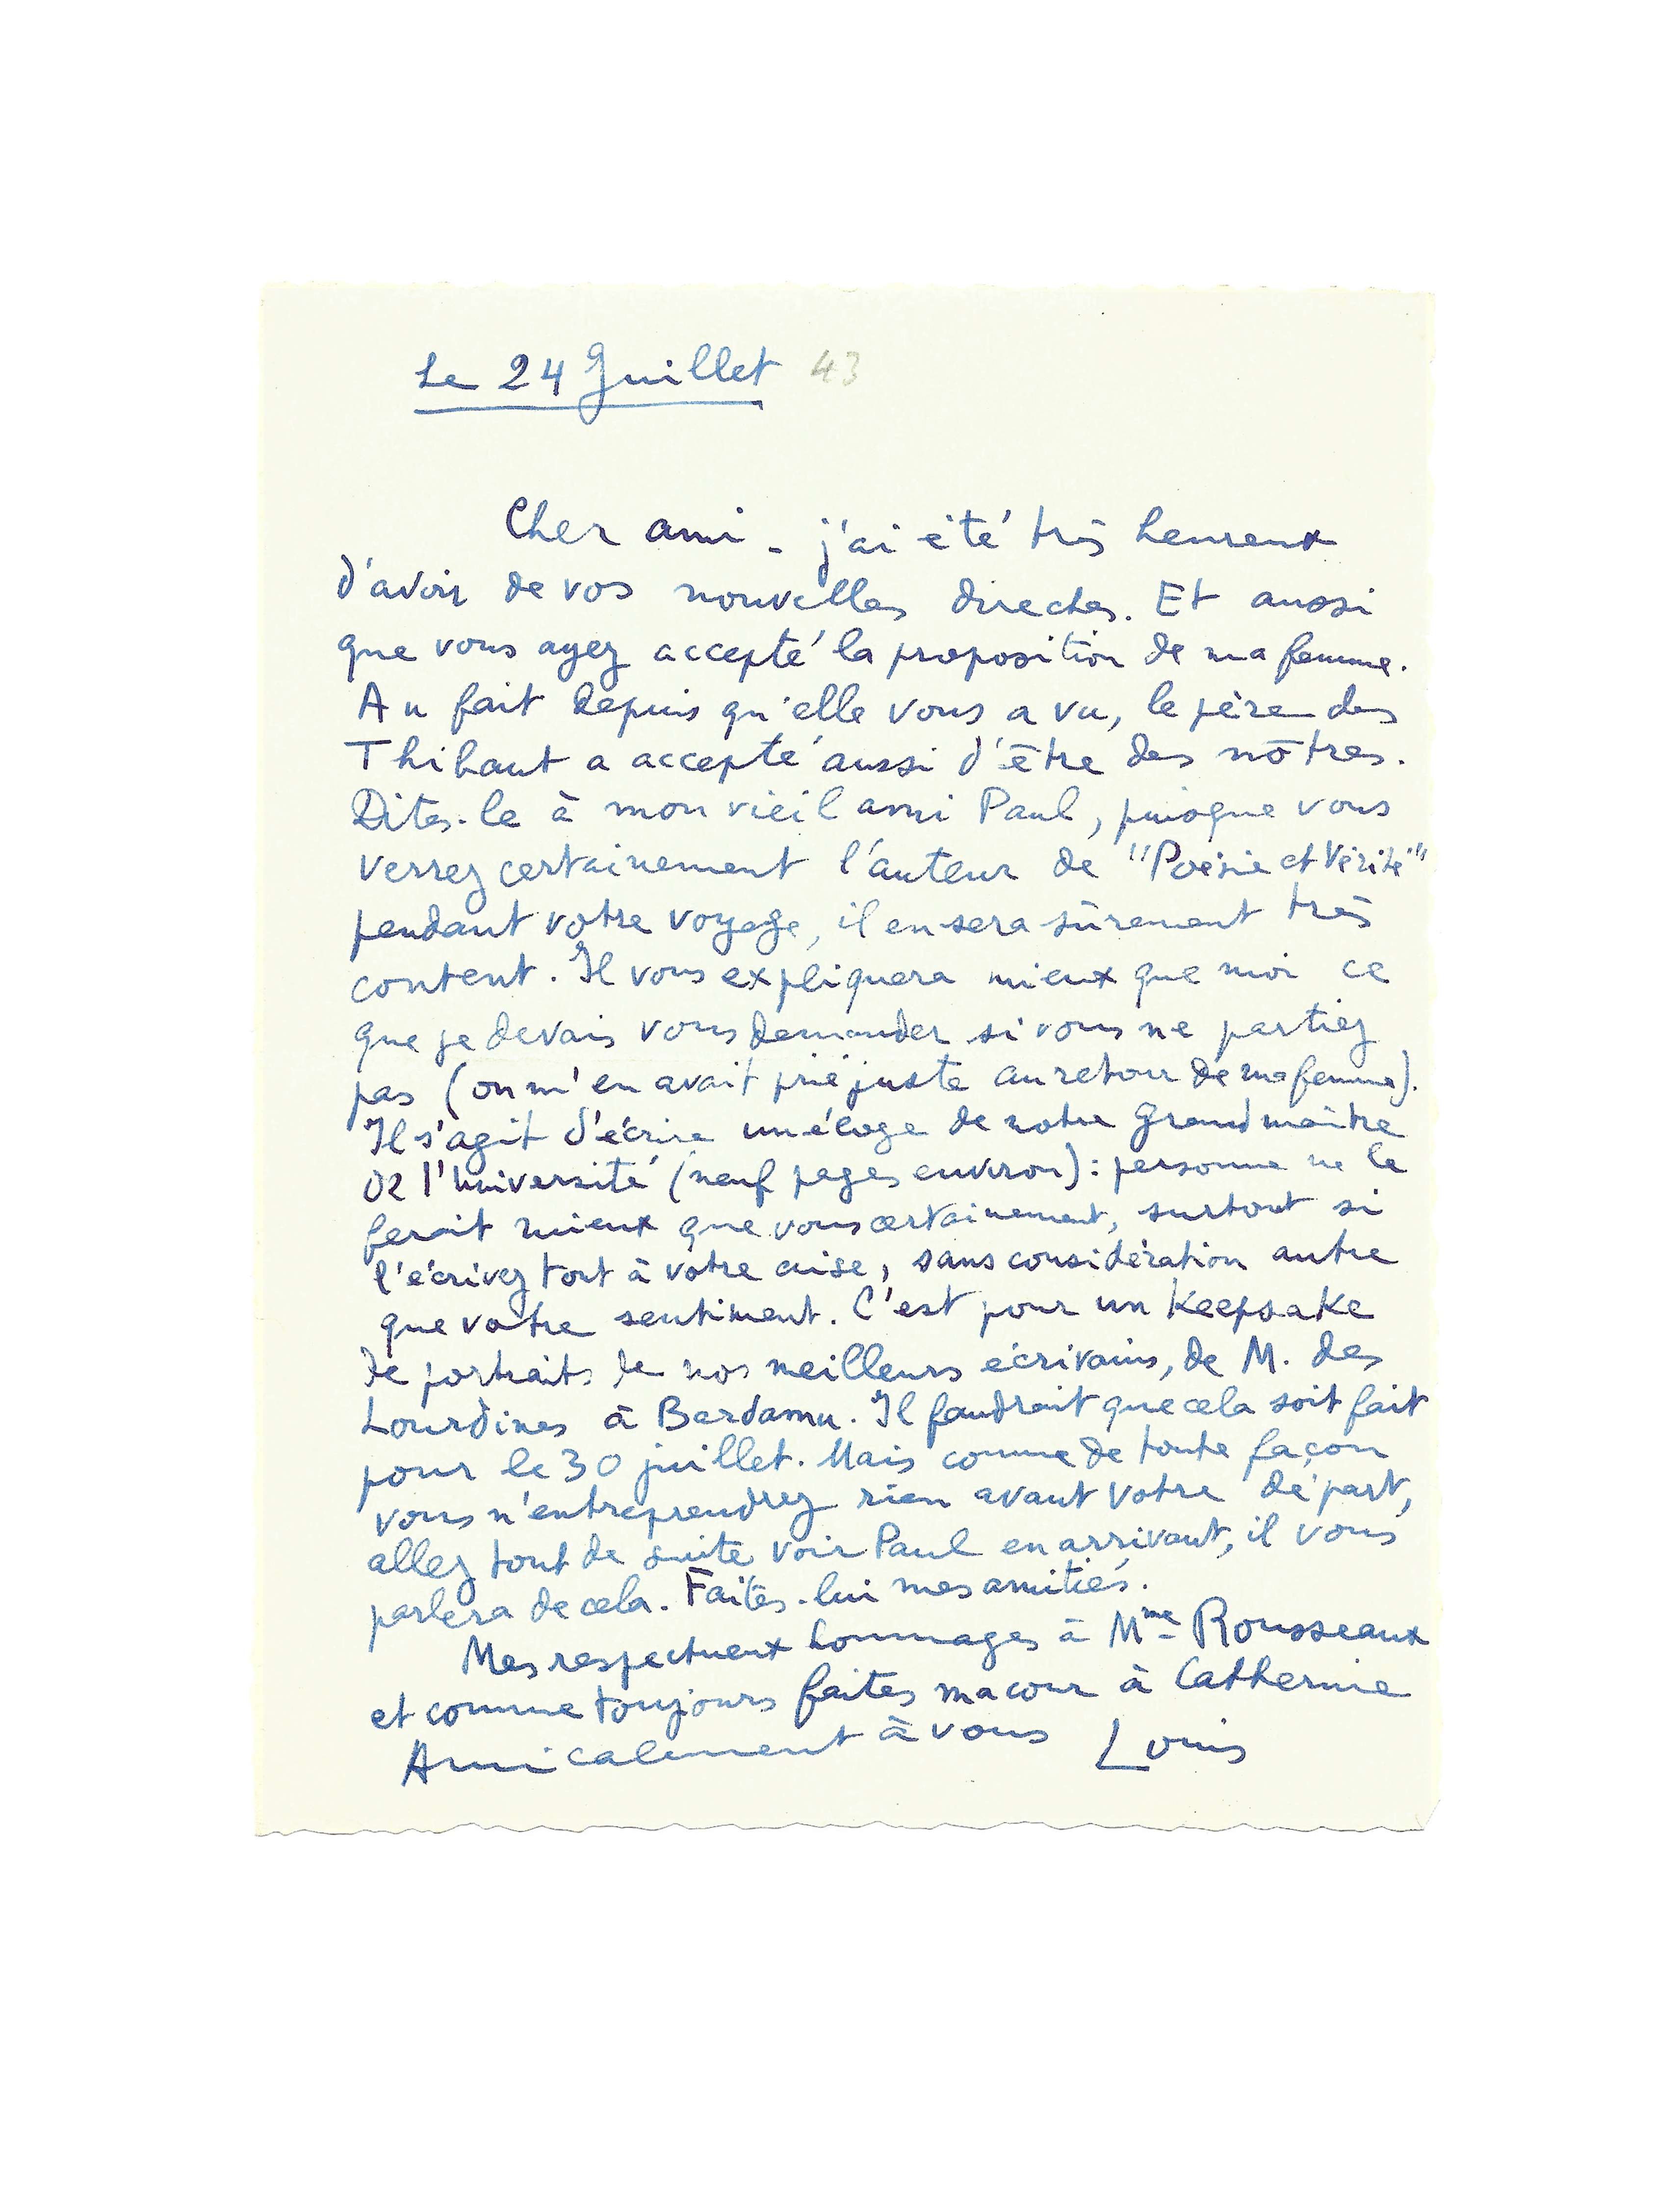 Le 24 Juillet 43
Cher ami - j'ai été très heureux
d'avoir de vos nouvelles directes. Et aussi
que vous ayez accepté la proposition de ma femme.
Au fait depuis qu'elle vous a vu, le père des
Thibaut a accepté aussi d'être des nôtres.
Dites-le à mon vieil ami Paul, puisque vous
verrez certainement l'auteur de "Poésie et Vérité"
pendant votre voyage, il en sera sûrement très
content. Il vous expliquera mieux que moi ce
que je devais vous demander si vous ne partiez
pas (on m'en avait prié juste au retour de ma femme).
Il s'agit d'écrire un éloge de notre Grand maître
de l'Université (neuf pages environ) : personne ne le
ferait mieux que vous certainement, surtout si
l'écrivez tout à votre aise, sans considération autre
que votre sentiment. C'est pour un Keepsake
de portraits de nos meilleurs écrivains, de M. des
Lourdines à Bardamu. Il faudrait que cela soit fait
pour le 30 juillet. Mais comme de toute façon
vous n'entreprendrez rien avant votre départ,
allez tout de suite voir Paul en arrivant, il vous
parlera de cela. Faites-lui mes amitiés.
Mes respectueux hommages à Mme Rousseaux
et comme toujours faites ma cour à Catherine
Amicalement à vous Louis